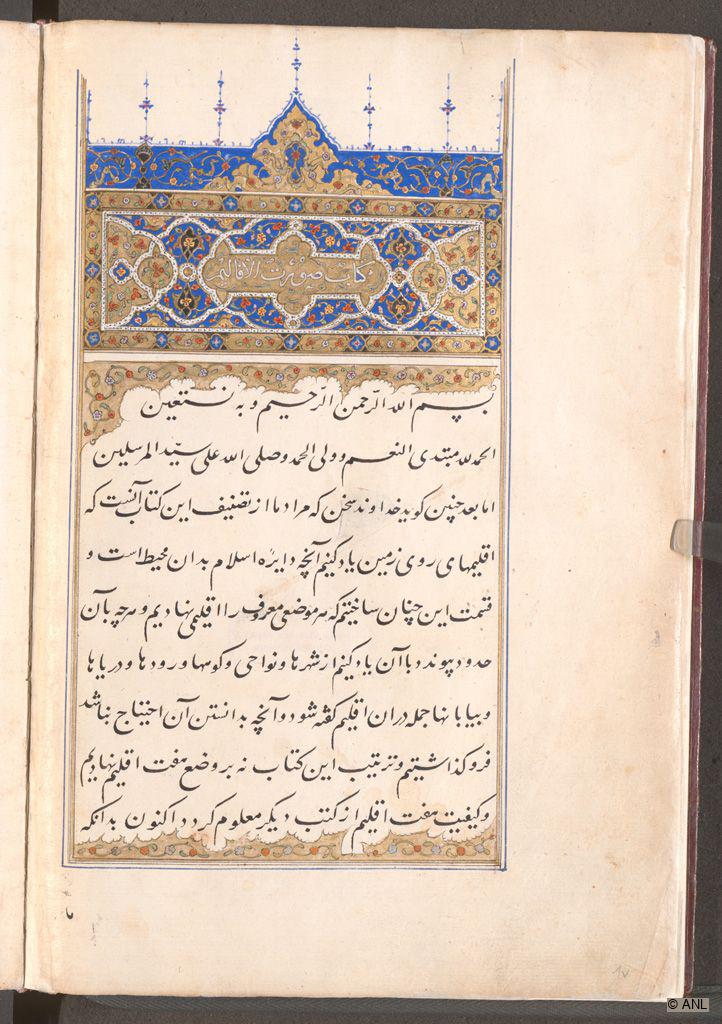 کتاب صورت الاقالیم
بسم الله الرحمن الرحیم و به نستعین
الحمدلله مبتدی النعم وولی الحمد وصلی الله علی سید المرسلین
اما بعد چنین کوید خداوند سخن که مراد ما از تصنیف این کتاب آنست که
اقلیمهای روی زمین یاد کنیم آنچه دایرهٔ اسلام بدان محیط است و
قسمت این چنان ساختیم که هر موضعی معروف را اقلیمی نهادیم و هرچه بآن
حدود پیوندد با آن یاد کنیم از شهرها و نواحی و کوهها و رودها و دریاها
و بیابانها جمله دران اقلیم کفته شود و آنچه بدانستن آن احتیاج نباشد
فرو کذاشتیم و ترتیب این کتاب نه بر وضع هفت اقلیم نهادیم
و کیفیت هفت اقلیم از کتب دیکر معلوم کردد اکنون بدانکه
© ANL